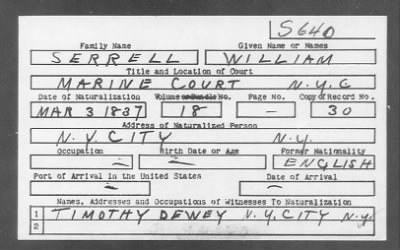 S640
Family Name Given Name or Names
SERRELL WILLIAM
Title and Location of Court
MARINE COURT N.Y.C
Date of Naturalization Volume or Bundle No. Page No. Copy of Record No.
MAR 3 1837 18 — 30
Address of Naturalized Person
N.Y. CITY N.Y.
Occupation Birth Date or Age Former Nationality
— — ENGLISH
Port of Arrival in the United States Date of Arrival
— —
Names, Addresses and Occupations of Witnesses To Naturalization
1 TIMOTHY DEWEY N.Y. CITY N.Y.
2